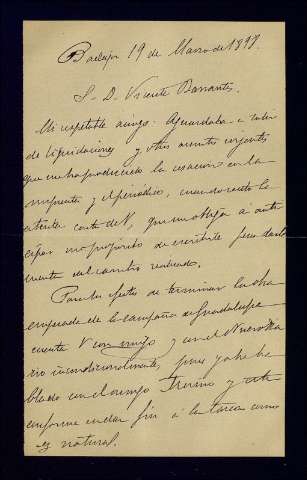 Badajoz 19 de Marzo de 1898.
S. D. Vicente Barrantes.
Mi respetable amigo: Aguardaba a salir
de liquidaciones y otros asuntos urgentes
que me ha producido la cesación en la
imprenta y el periódico, cuando recibo la
atenta carta de V, que me obliga á anti
cipar mi propósito de escribirle para darle
cuenta del cambio realizado.
Para los efectos de terminar la obra
empezada de la campaña de Guadalupe
cuenta V conmigo y con el Nuevo Dia
rio incondicionalmente, pues ya he ha
blado con el amigo y está
conforme en dar fin á la tarea como
es natural.